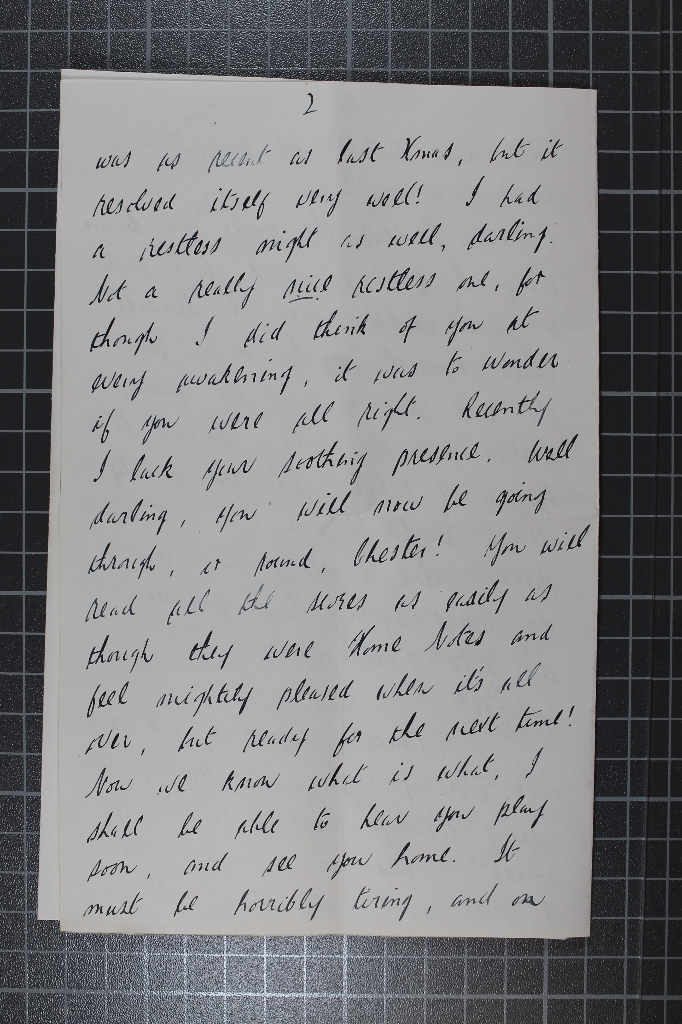 2
was as recent as last Xmas, but it
resolved itself very well! I had
a restless night as well, darling.
Not a really nice restless one, for
though I did think of you at
every awakening, it was to wonder
if you were all right. Recently
I lack your soothing presence. Well
darling, you will now be going
through, or round, Chester! You will
read all the scores as easily as
though they were Home Notes and
feel mightily pleased when it's all
over, but ready for the next time!
Now we know what is what, I
shall be able to hear you play
soon, and see you home. It
must be horribly tiring, and on